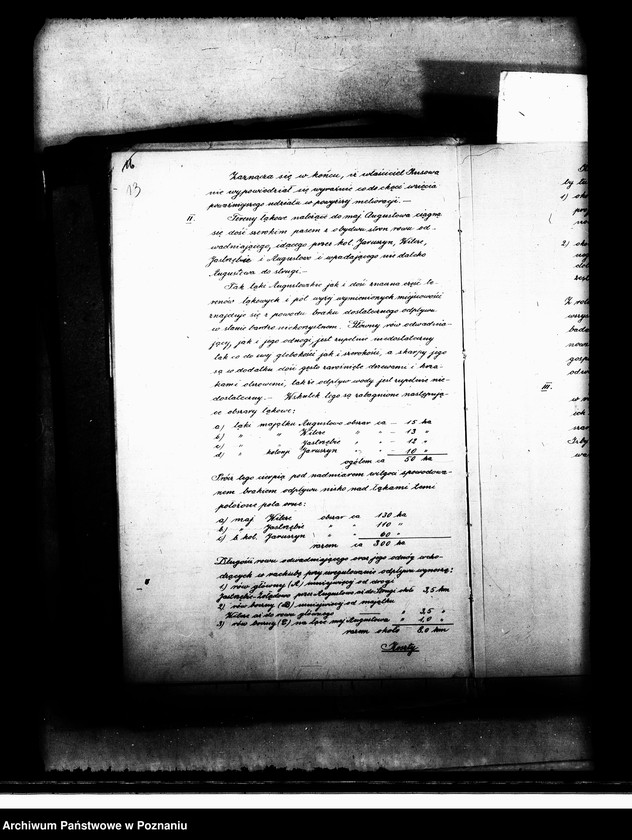 13
Zaznacza się w końcu, iż właściciel Kusowa
nie wypowiedział się wyraźnie co do chęci wzięcia
poważniejszego udziału w powyższej melioracji. —
II. Tereny łąkowe należące do maj. Augustowa ciągną
się dość szerokim pasem z obydwu stron rowu od-
wadniającego, idącego przez kol. Jaruszyn, Wilcze,
Jastrzębie i Augustowo i wpadającego nie daleko
Augustowa do strugi. —
Tak łąki Augustowskie jak i dość znaczna część te-
renów łąkowych i pól wyżej wymienionych miejscowości
znajduje się z powodu braku dostatecznego odpływu
w stanie bardzo niekorzystnem. Główny rów odwadnia-
jący, jak i jego odnogi jest zupełnie niedostateczny
tak co do swej głębokości jak i szerokości, a skarpy jego
są w dodatku dość gęsto zarośnięte drzewami i krza-
kami olszowemi, także odpływ wody jest zupełnie nie-
dostateczny. — Wskutek tego są zabagnione następują-
ce obszary łąkowe:
a) łąki majątku Augustowo obszar ca — 15 ha
b) " " Wilcze " " — 13 "
c) " " Jastrzębie " " — 12 "
d) " kolonji Jaruszyn " " — 10 "
ogółem ca 50 ha
Prócz tego cierpią pod nadmiarem wilgoci spowodowa-
nem brakiem odpływu nisko nad łąkami temi
położone pola orne:
a) maj. Wilcze obszar ca 130 ha
b) " Jastrzębie " " 110 "
c) b. kol. Jaruszyn " " 60 "
razem ca 300 ha
Długości rowu odwadniającego oraz jego odnóg wcho-
dzących w rachubę przy uregulowaniu odpływu wynoszą:
1) rów główny (A) umiejscowiony od drogi
Jastrzębie-Żołędowo przez Augustowo aż do strugi około 3,5 km
2) rów boczny (B) umiejscowiony od majątku
Wilcze aż do rowu głównego — " 3,5 "
3) rów boczny (C) na łące maj. Augustowa " 1,0 "
razem około 8,0 km
Koszty
III.
1)
2)